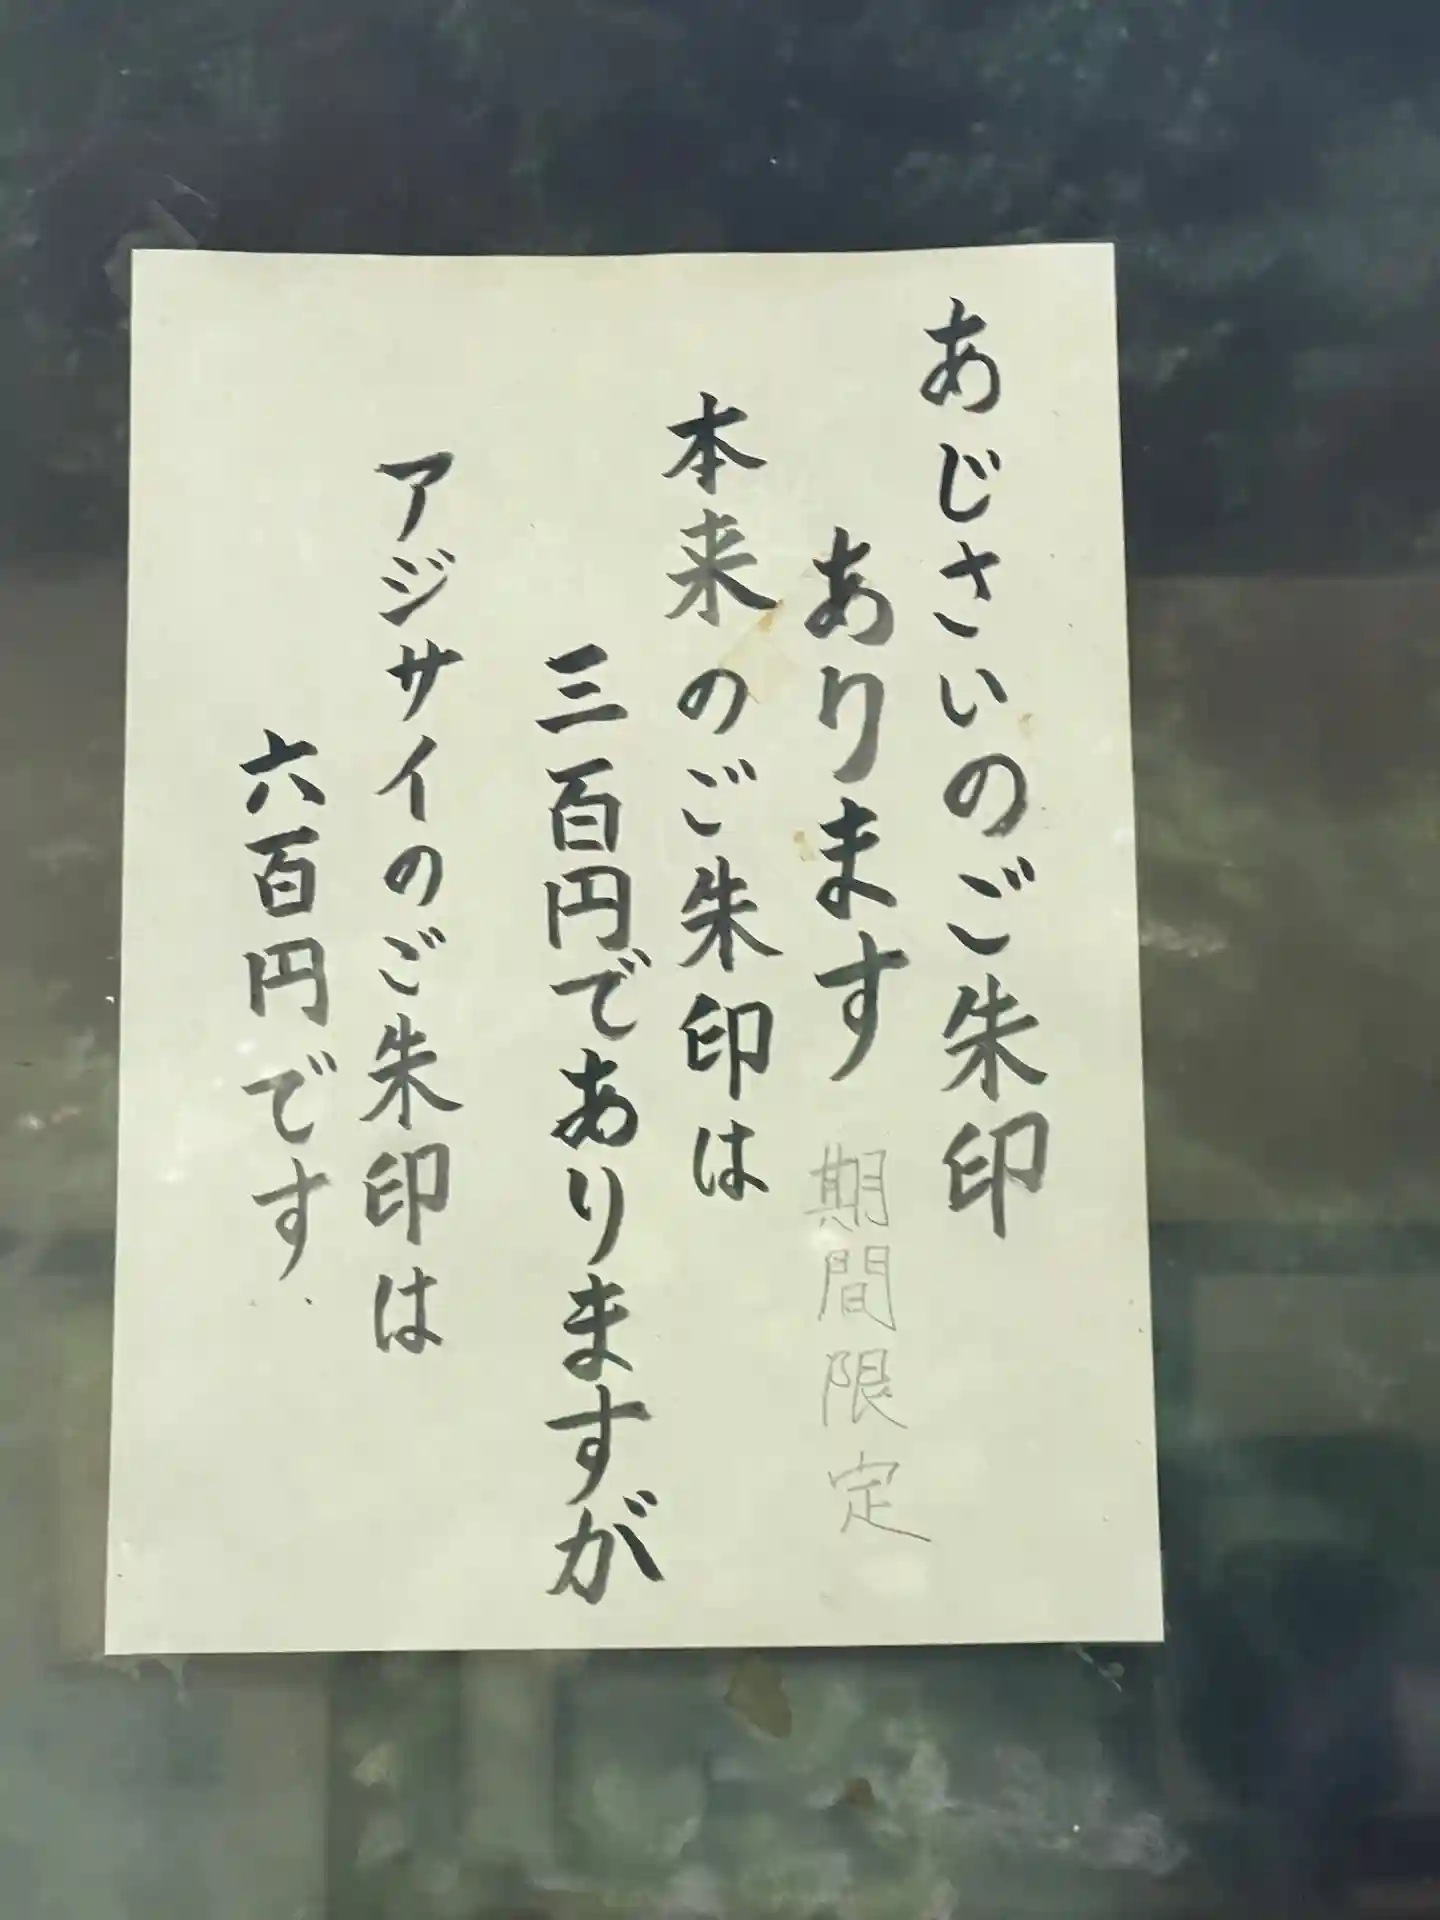 あじさいのご朱印
あります 期間限定
本来のご朱印は
三百円でありますが
アジサイのご朱印は
六百円です